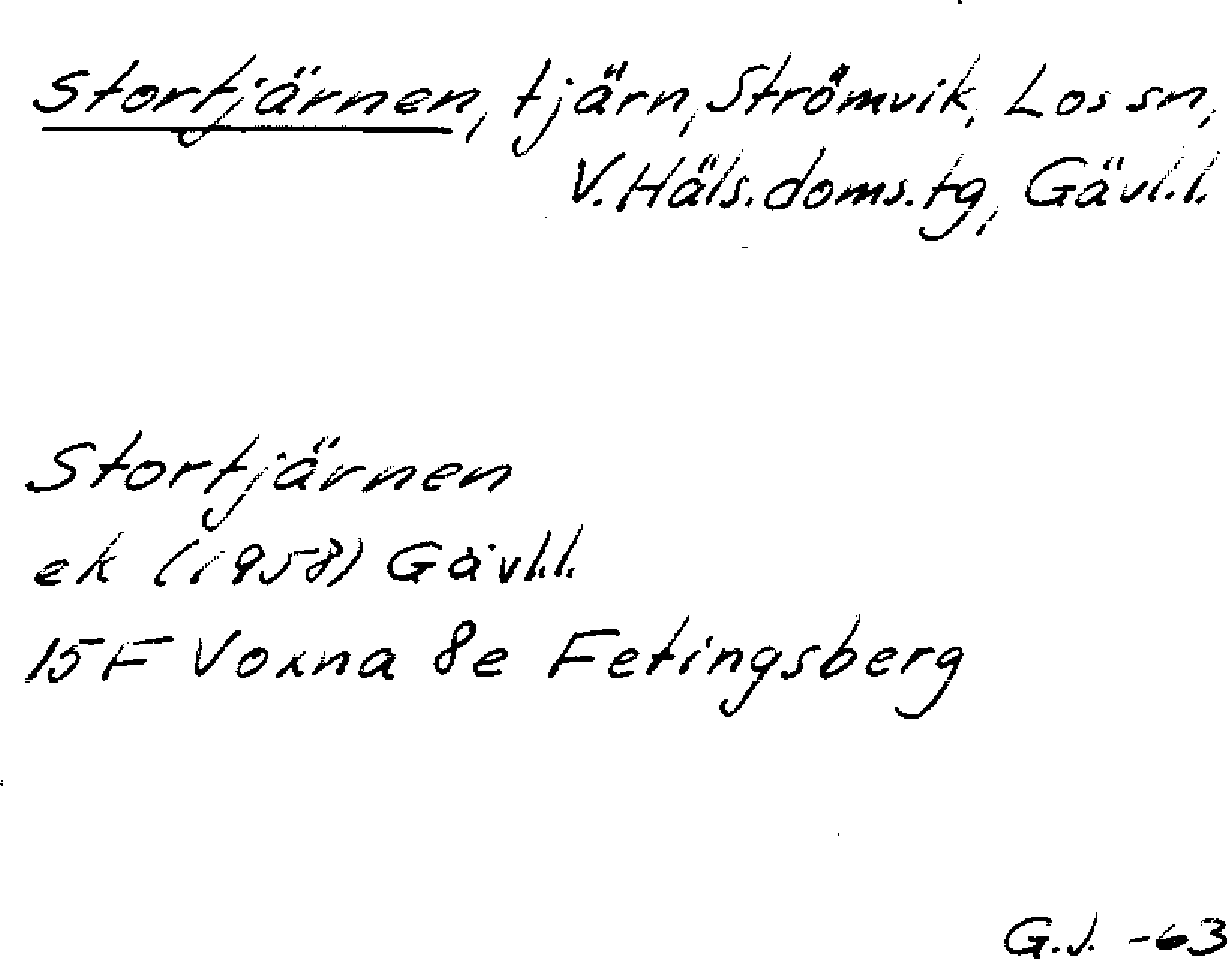 Stortjärnen, tjärn, Strömvik, Los sn,
V. Häls. doms. tg, Gävl.l.
Stortjärnen
ek (1958) Gävl.l.
15F Voxna 8e Fetingsberg
G.J. -63